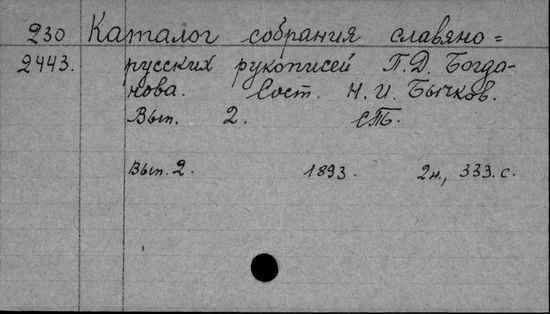 230 Каталог собрания славяно=
2443. русских рукописей П. Д. Богда-
нова. Сост. И. И. Бычков.
Вып. 2. СПб.
Вып. 2. 1893. 2н., 333 с.